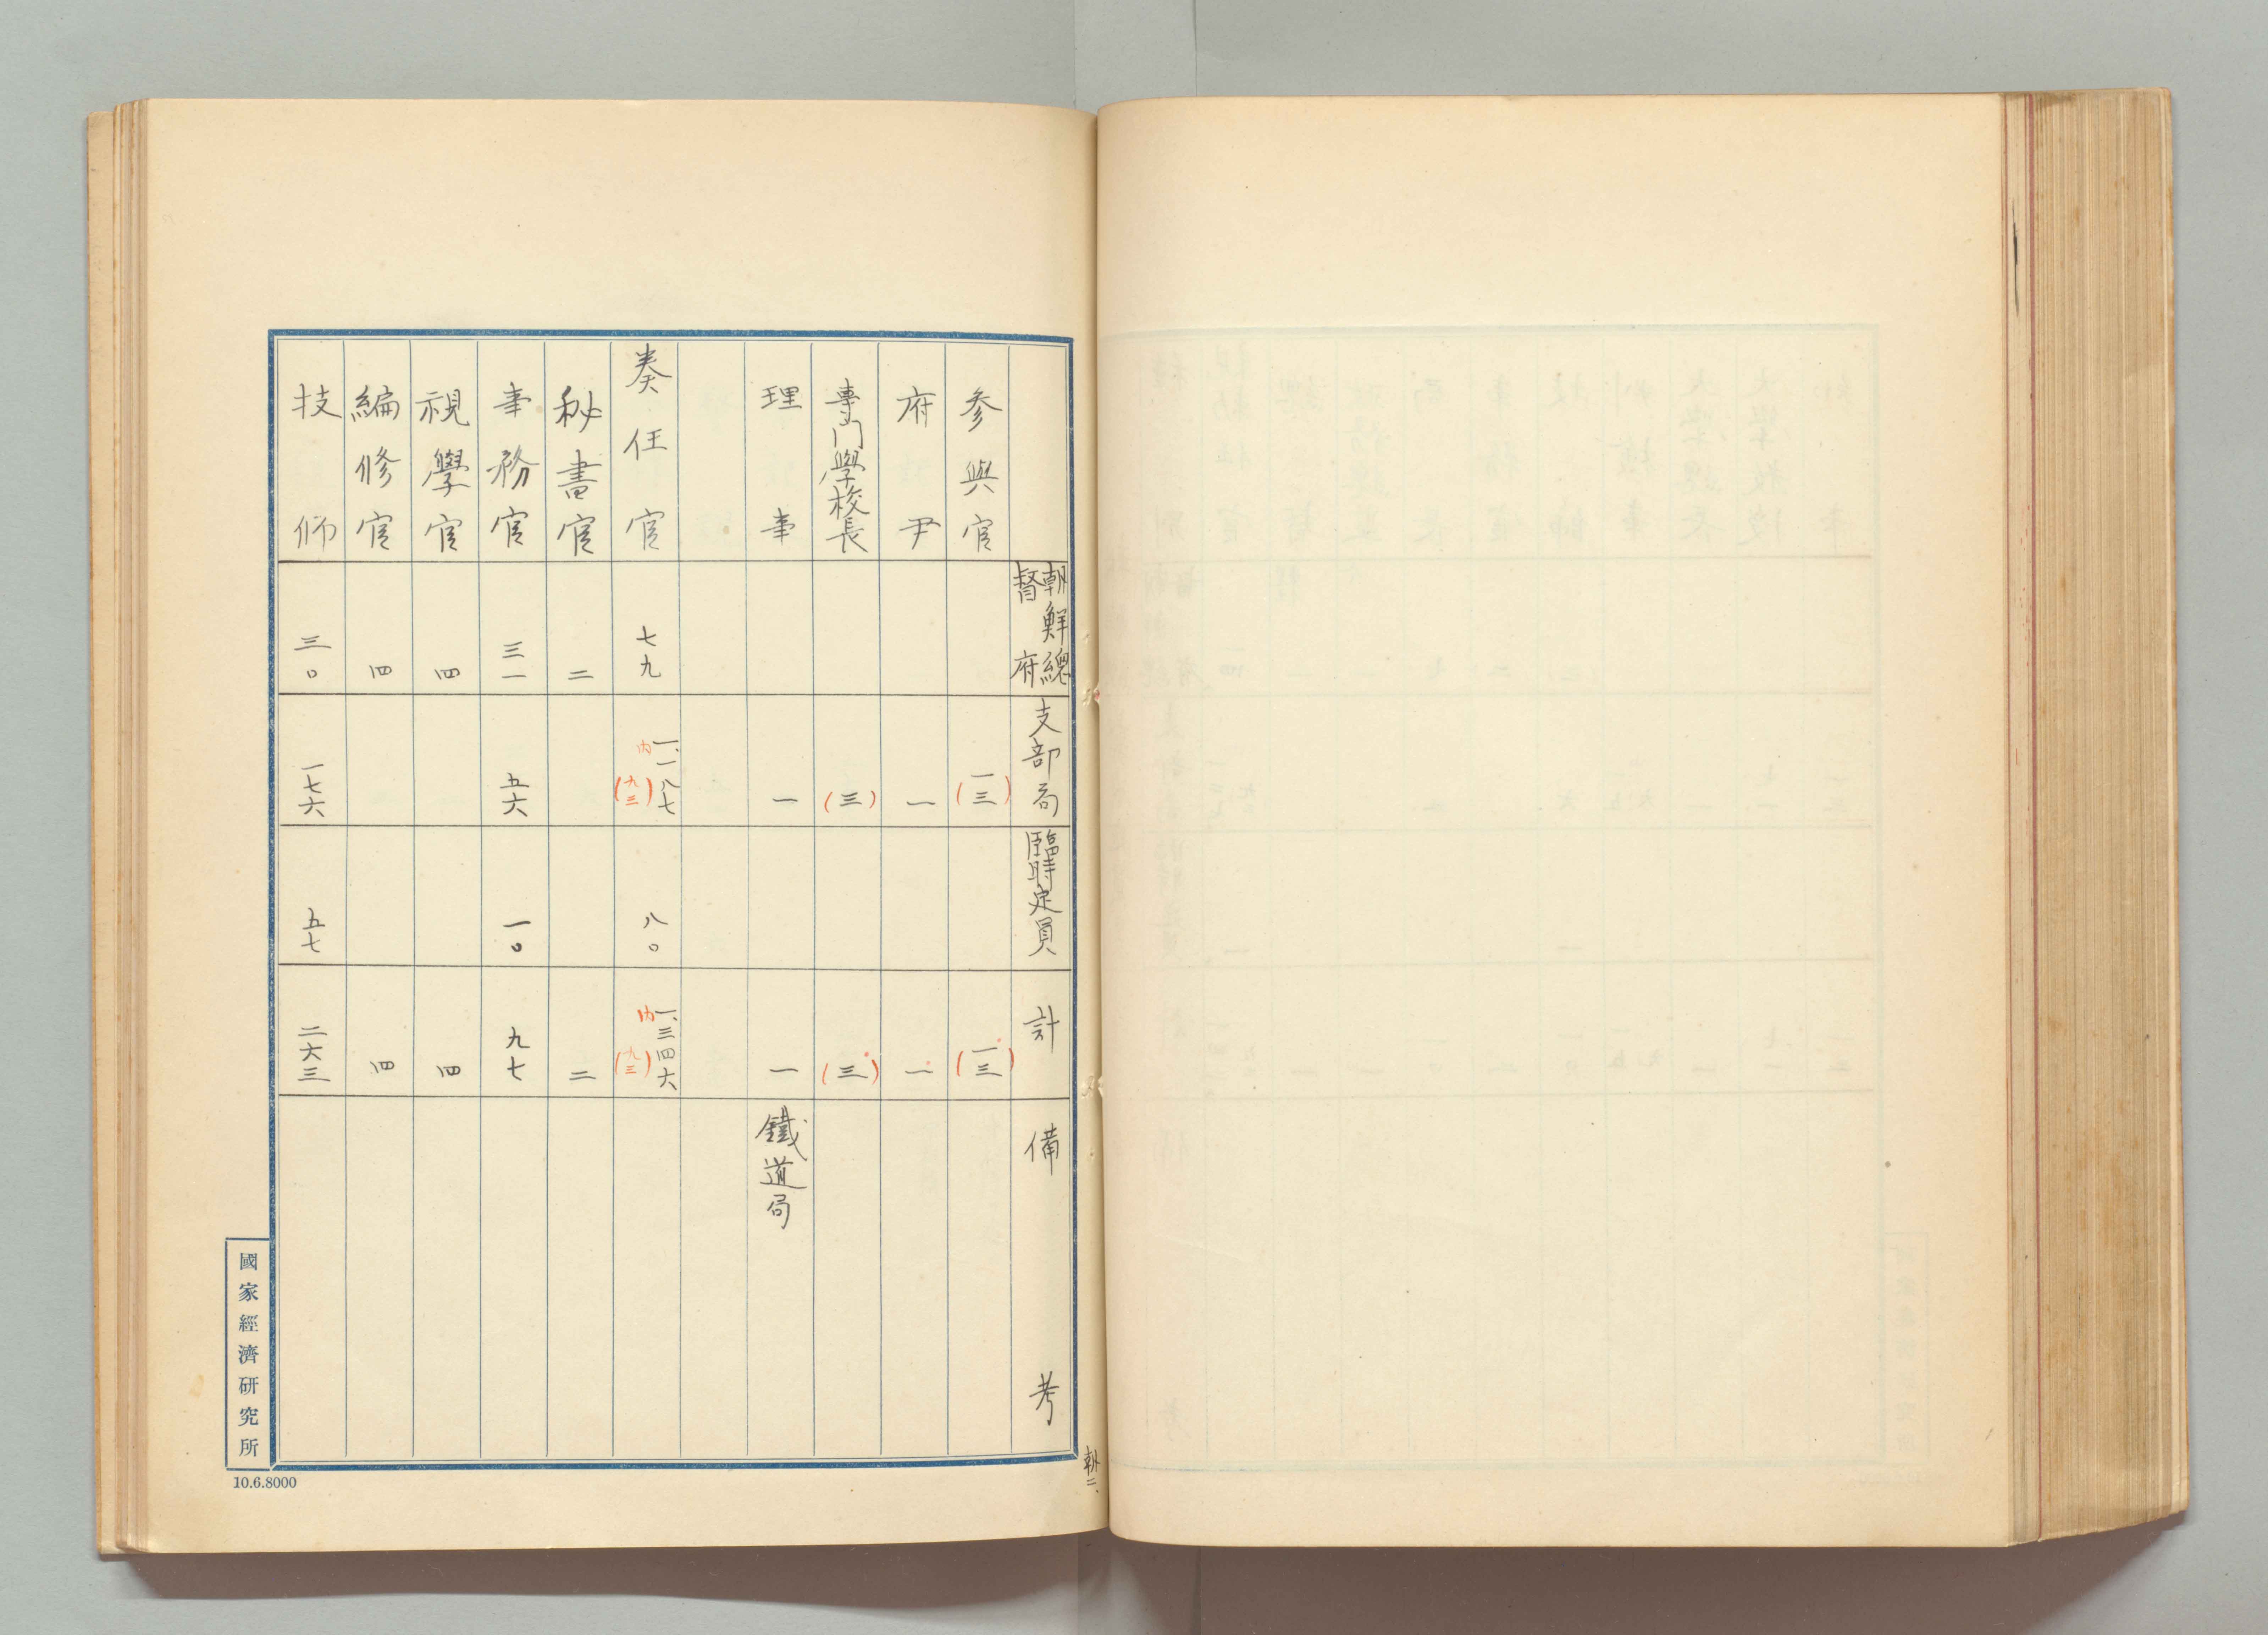 朝鮮總督府 支部局 臨時定員 計 備考
參與官 (一三) (一三)
府尹 一 一
專門學校長 (三) (三)
理事 一 一 鐵道局
奏任官 七九 一、一八七 內(九三) 八〇 一、三四六 內(九三)
秘書官 二 二
事務官 三一 五六 一〇 九七
視學官 四 四
編修官 四 四
技師 三〇 一七六 五七 二六三
朝二、
國家經濟研究所
10.6.8000